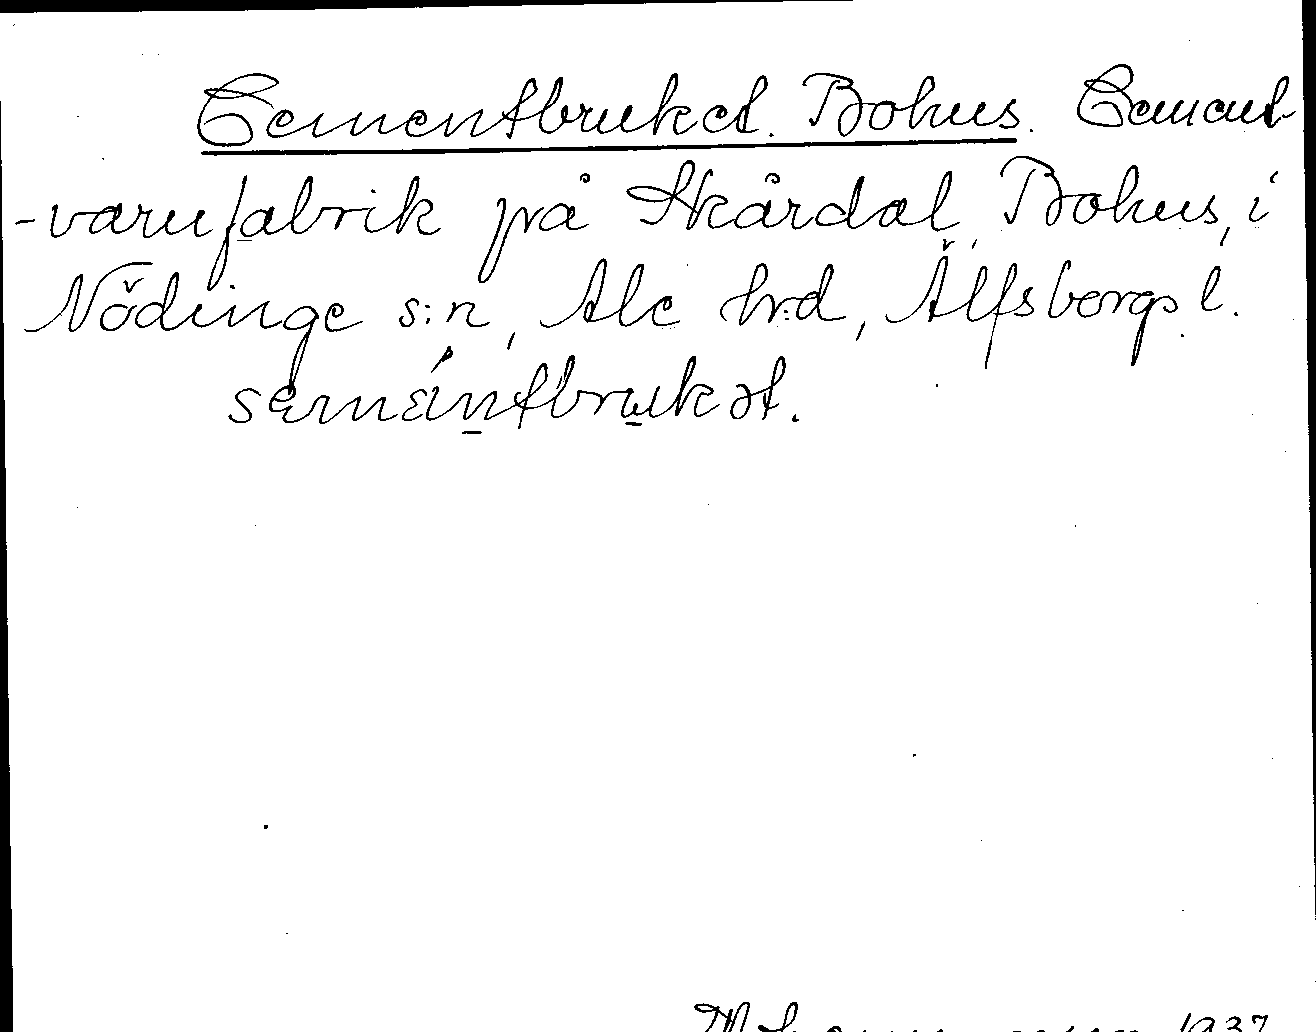 Cementbruket. Bohus. Cement-
-varufabrik på Skårdal, Bohus, i
Nödinge s:n, Ale hrd, Älfsborgs l.
semän̲tbru̲kət.
1937